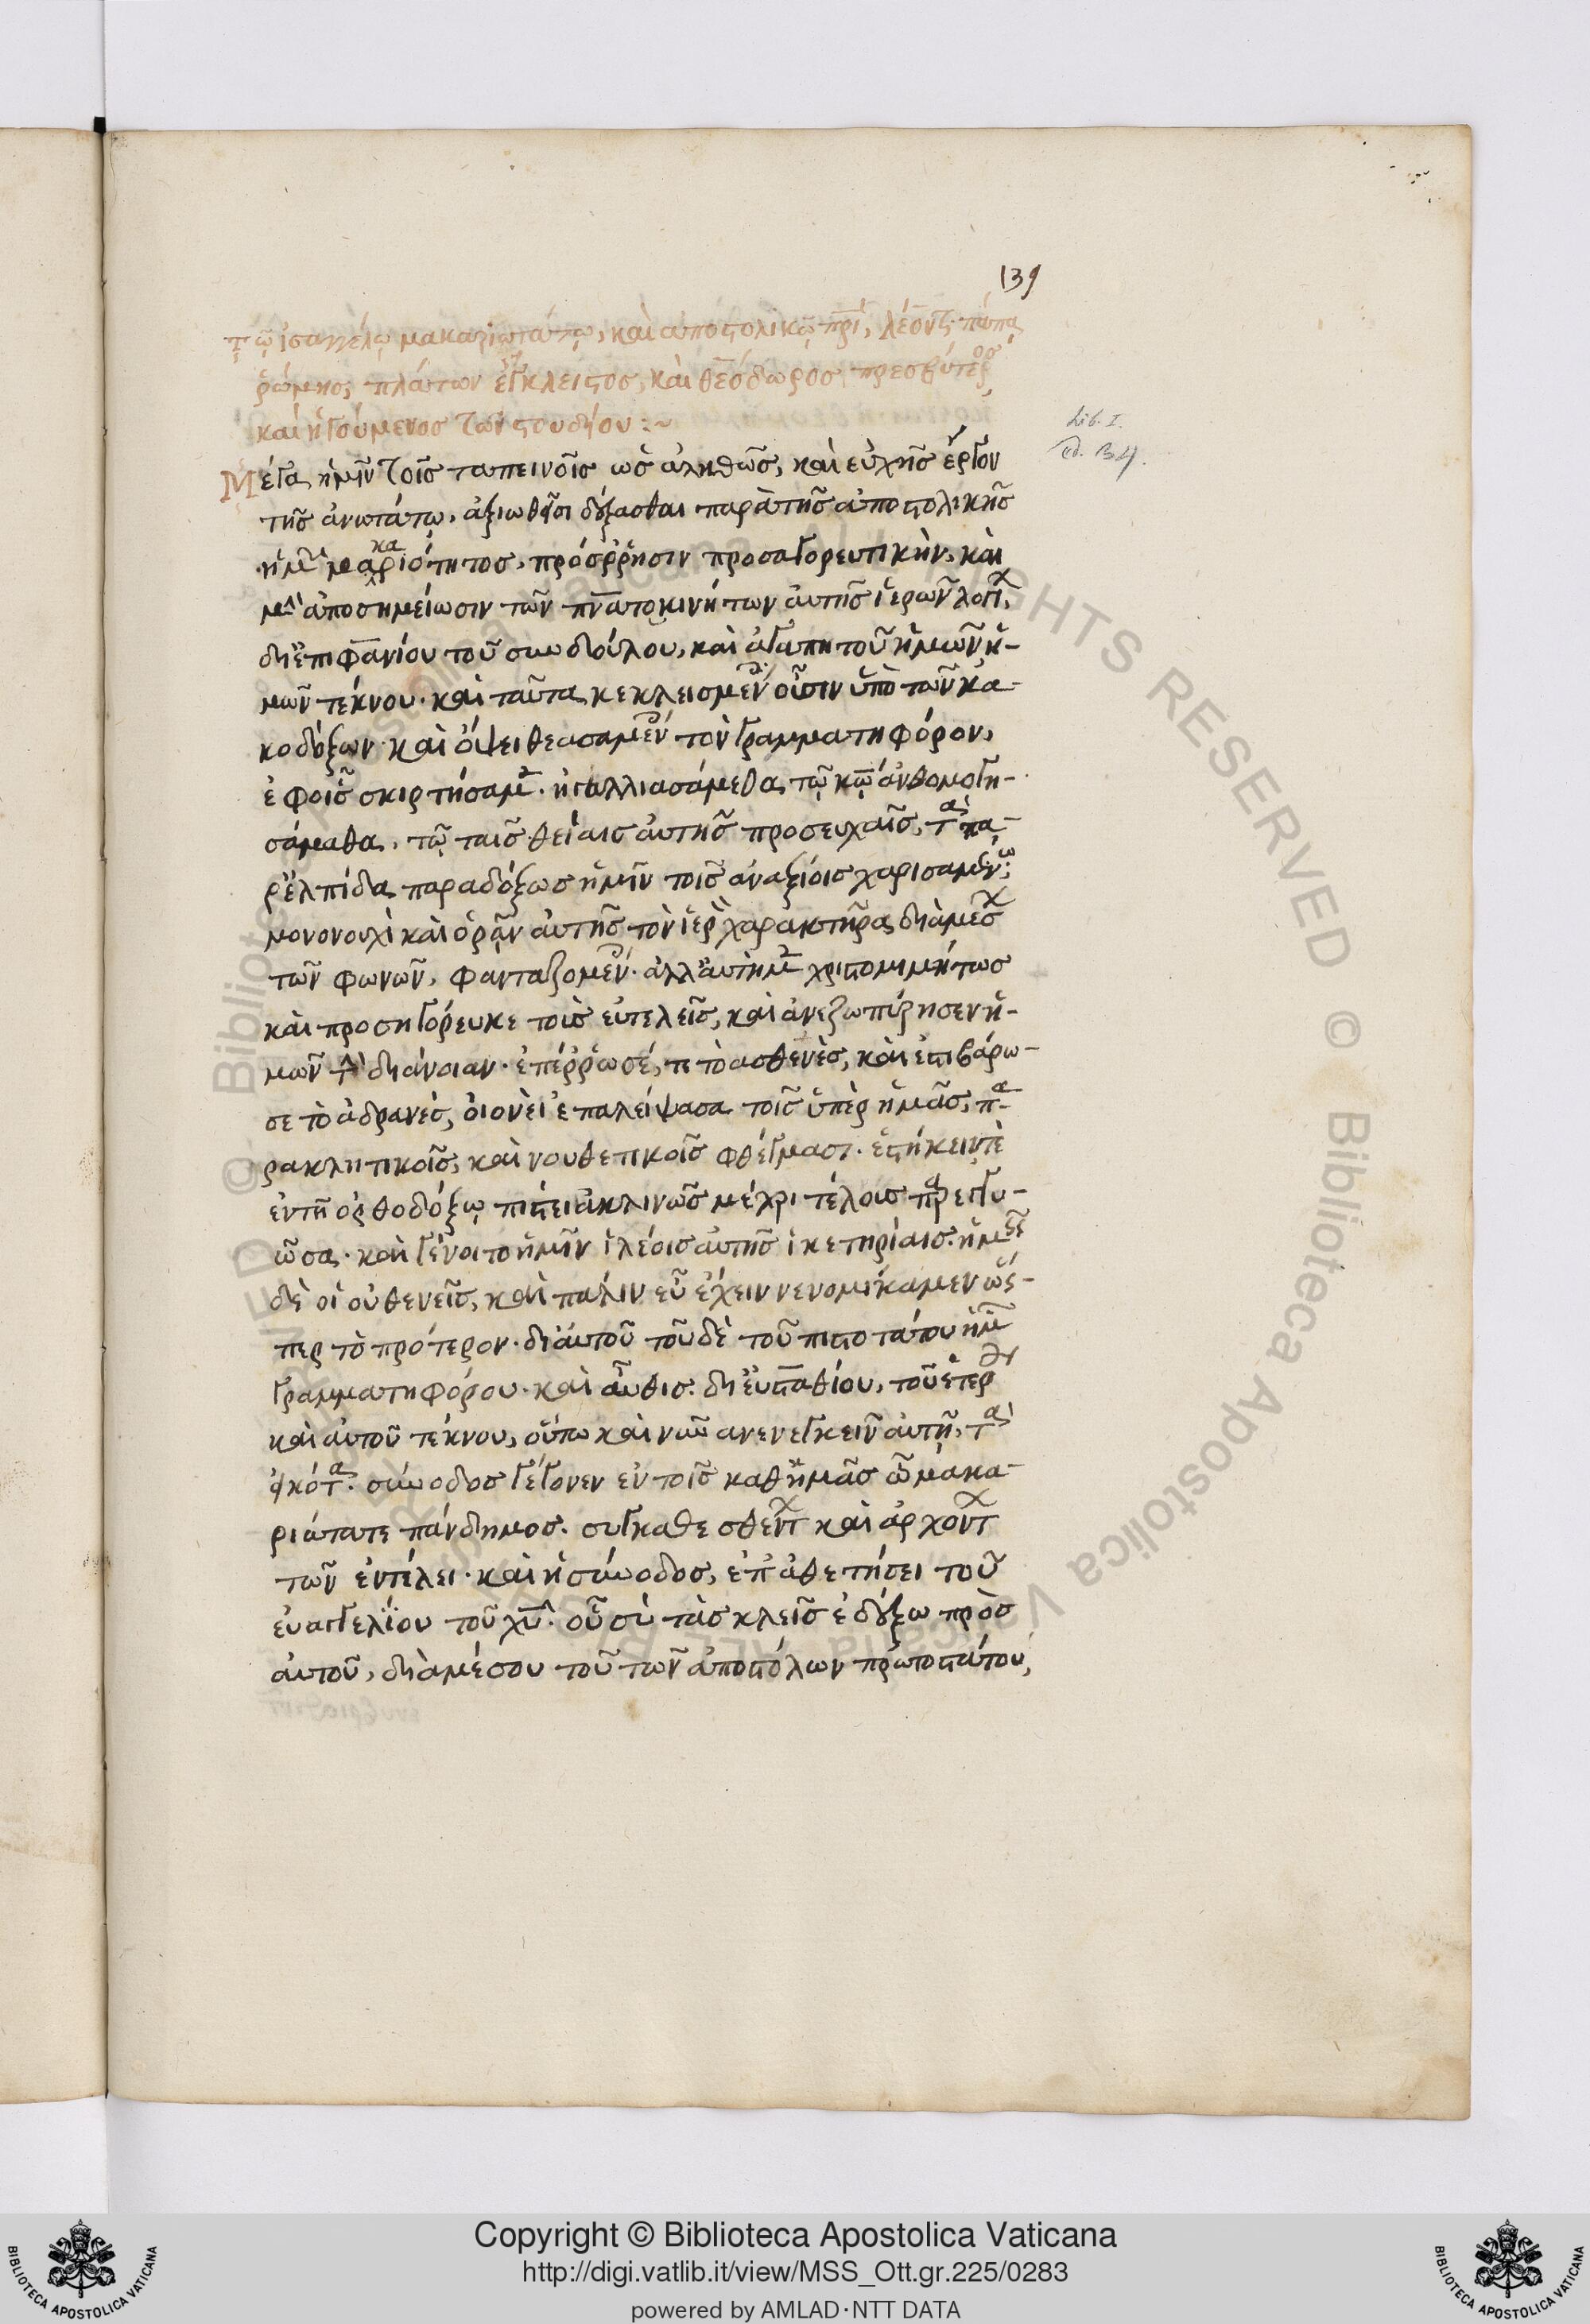 139
τῷ ἰσαγγέλῳ μακαριωτάτῳ, καὶ ἀποστολικῷ πρι, λέοντι πάπα
ῥώμης πλάτων ἔγκλειστος, καὶ θεόδωρος πρεσβύτερος
καὶ ἡγούμενος τῶν στουδίου :~
Lib. I.
Μέγα ἡμῖν τοῖς ταπεινοῖς ὡς ἀληθῶς, καὶ εὐχῆς ἔργον
τῆς ἀνωτάτω, ἀξιωθῆσι δέξασθαι παρὰ τῆς ἀποστολικῆς
μακαριότητος, πρόσρρησιν προσαγορευτικὴν, καὶ
ἀποσημείωσιν τῶν πνατοκινήτων αὐτῆς ἱερῶν λογί
δι' ἐπιφανίου τοῦ συνδούλου, καὶ ἀγαπητοῦ ἡμῶν ἡ-
μῶν τέκνου. καὶ ταῦτα κεκλεισμένοις οὖσιν ὑπὸ τῶν κα-
κοδόξων καὶ ὄψει θεασαμένοις τὸν γραμματηφόρον,
ἐφ οἷς σκιρτήσαμεν. ἠγαλλιασάμεθα, τῷ κῷ ἀνθομολγη-
σάμεθα, τῷ ταῖς θείαις αὐτῆς προσευχαῖς, τὰ πα-
ρ' ἐλπίδα παραδόξως ἡμῖν τοῖς ἀναξίοις χαρισαμένω.
μονονουχὶ καὶ ὁρᾶν αὐτῆς τὸν ἱερὸν χαρακτῆρα διὰ μέσ
τῶν φωνῶν, φανταζομένοις. ἀλλ' αὐτὴ μὲν χριστομιμήτως
καὶ προσηγόρευκε τοὺς εὐτελεῖς, καὶ ἀνεζωπύρησεν ἡ-
μῶν τὴν διάνοιαν. ἐπέρρωσέ, τε τὸ ἀσθενὲς, καὶ ἐστιβάρω-
σε τὸ ἀδρανὲς, οἱονεὶ ἐπαλείψασα τοῖς ὑπὲρ ἡμᾶς, πα-
ρακλητικοῖς, καὶ νουθετικοῖς φθέγμασι. ἑστήκειν τὲ
ἐν τῇ ὀρθοδόξῳ πίστει ἀκλινῶς μέχρι τέλους παρεγγυ-
ῶσα. καὶ γένοιτο ἡμῖν ἱλέοις αὐτῆς ἱκετηρίαις. ἡμεῖς
δὲ οἱ οὐθενεῖς, καὶ πάλιν εὖ ἔχειν νενομίκαμεν ὥσ-
περ τὸ πρότερον. δι' αὐτοῦ τοῦδὲ τοῦ πιστοτάτου ἡμῶν
γραμματηφόρου. καὶ αὖθις. δι' εὐσταθίου, τοῦ ἑτέρου
καὶ αὐτοῦ τέκνου, οὕτω καὶ νῦν ἀνενεγκεῖν αὐτῇ, τὰ
εἰκότα. σύνοδος γέγονεν ἐν τοῖς καθ' ἡμᾶς ὦ μακα-
ριώτατε πάνδημος. συγκαθεσθέντων καὶ ἀρχόντων
τῶν ἐν τέλει. καὶ ἡ σύνοδος, ἐπ' ἀθετήσει τοῦ
εὐαγγελίου τοῦ χυ. οὗ σὺ τὰς κλεῖς ἐδέξω πρὸς
αὐτοῦ, διὰ μέσου τοῦ τῶν ἀποστόλων πρωτοστάτου,
Copyright © Biblioteca Apostolica Vaticana
http://digi.vatlib.it/view/MSS_Ott.gr.225/0283
powered by AMLAD·NTT DATA
BIBLIOTECA APOSTOLICA VATICANA
BIBLIOTECA APOSTOLICA VATICANA